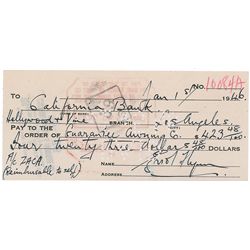 No. 10084A
Jan 15th 1946
To California Bank
Hollywood & Vine BRANCH Los Angeles
PAY TO THE
ORDER OF Guarantee Awning Co $ 423 48/100
Four twenty three dollars 48 DOLLARS
A/c ZACA
(Reimbursable to self)
NAME Errol Flynn
ADDRESS